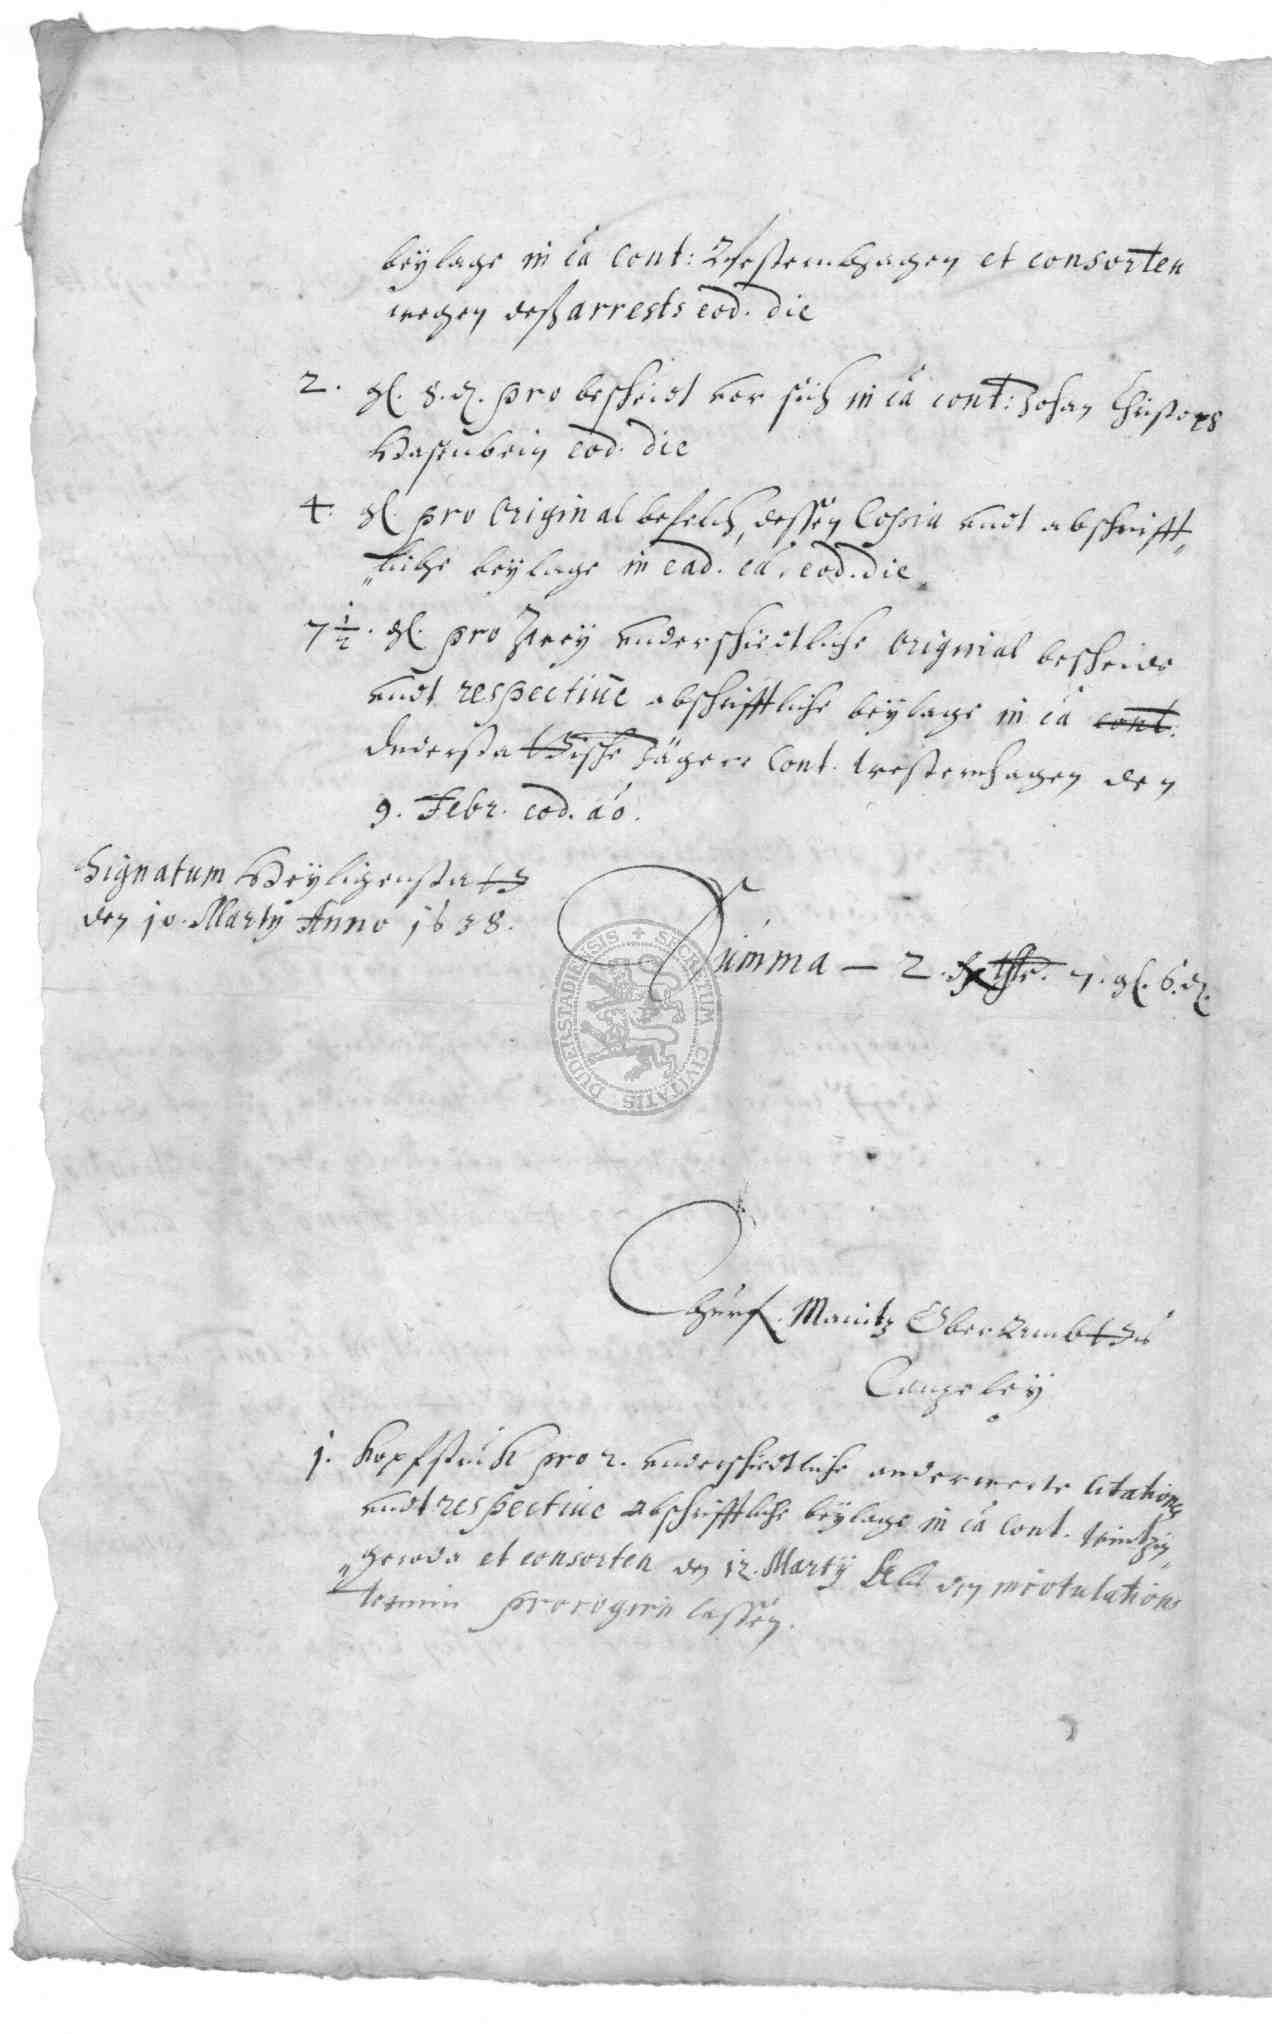 beylage in ca cont: Westernhagen et consorten
wegen deß arrests eod. die
2. gl. 8. d. pro bescheidt vor sich in ca cont: Johan Christoph
Hasenbein eod. die
4. gl. pro Original befelch, dessen Copia undt abschrifft„
„liche beylage in ead. ca. eod. die
7½. gl. pro Zwey underschiedtliche Original bescheide
undt respective abschrifftliche beylage in ca cont:
Duderstattische Jägere Cont. Westernhagen den
9. Febr. eod. ao.
Signatum Heyligenstatt
den 10. Marty Anno 1638.
Summa — 2. thlr. 7. gl. 6. d.
SECRETUM CIVITATIS DUDERSTADIENSIS
Churf. Maintz Ober Ambts
Cantzeley
1. Kopfstück pro 2. underschiedtliche anderwerte Citationes
undt respective abschrifftliche beylage in ca Cont. Wintzin„
„geroda et consorten den 12. Marty den inrotulations
Termin prorogirn lassen.